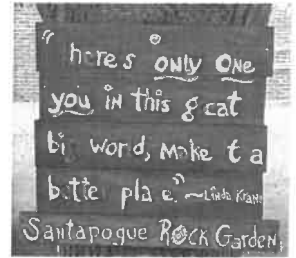 " here's only One
you in this g eat
bi wor d, Make t a
b tte pla e." ~Linda Kranz
Santapogue Rock Garden